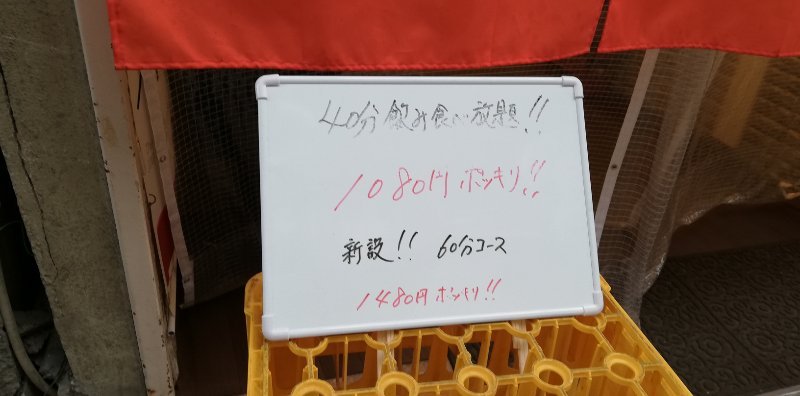 40分飲み食い放題!!
1080円ポッキリ!!
新設!! 60分コース
1480円ポッキリ!!